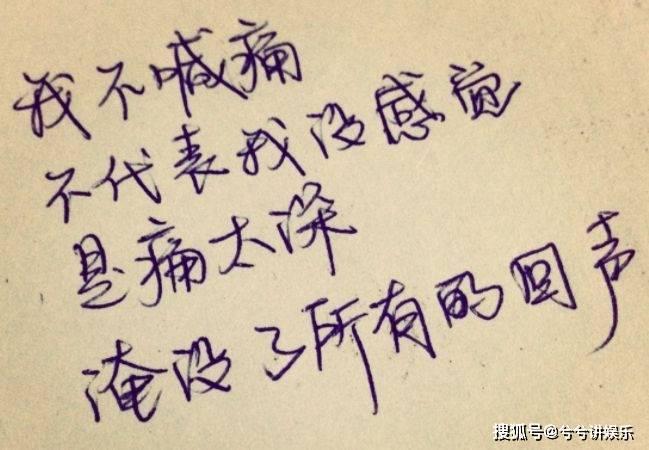 我不喊痛
不代表我没感觉
是痛太深
淹没了所有的回声
搜狐号@兮兮讲娱乐